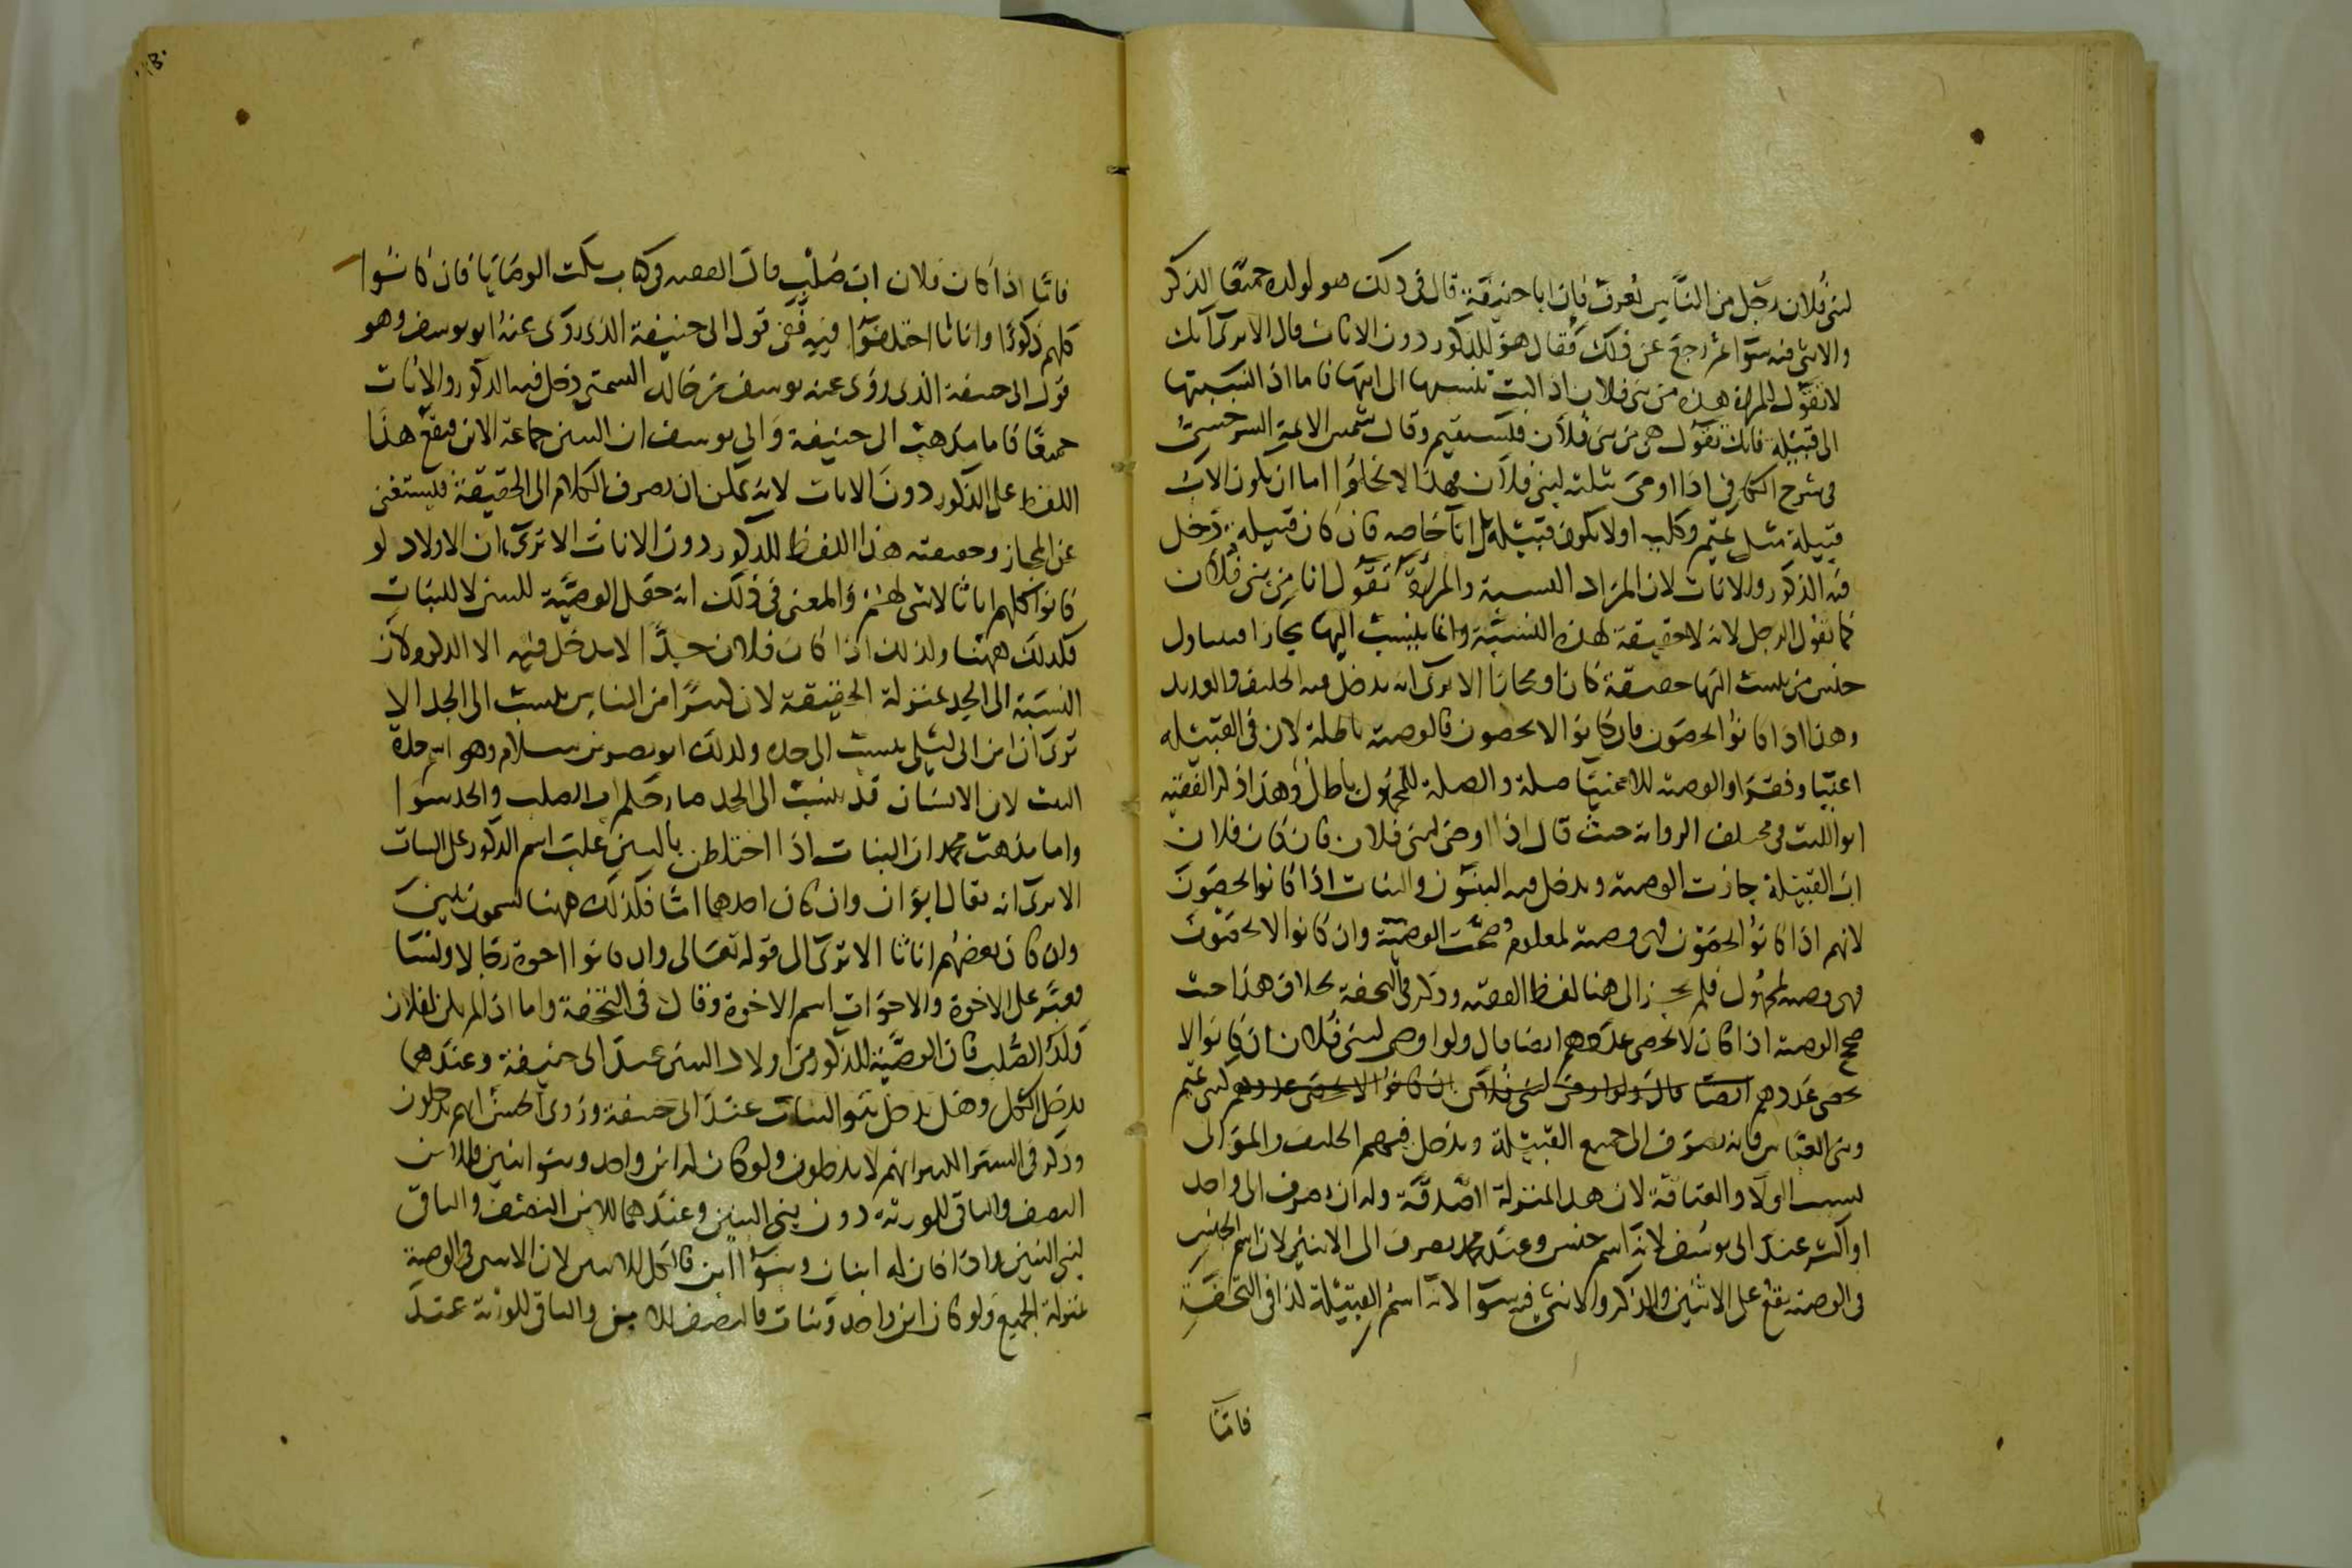 لبني فلان رجل من الناس يعرف فان ابا حنيفة قال في ذلك هو لولده جميعا الذكر
والانثى فيه سوا ثم رجع عن ذلك فقال هو للذكور دون الاناث قال الا ترى انك
لا تقول للمراة هذه من بني فلان اذا انت تنسبها الى ابيها فاما اذا انتسبتها
الى قبيلة فانك تقول هي من بني فلان فيستقيم وقال شمس الايمة السرخسي
في شرح الكافي اذا اوصى بثلثه لبني فلان فهذا لا يخلوا اما ان يكون الاب
قبيلة مثل تميم وكلب او لا يكون قبيلة بل ابا خاصه فان كان قبيله دخل
فيه الذكور والاناث لان المراد النسبة والمراة تقول انا من بني فلان
كما يقول الرجل لانه لا حقيقة لهذه النسبة وانما ينسب اليها مجازا فيتناول
جنس من ينسب اليها حقيقة كان او مجازا الا ترى انه يدخل فيه الحليف والعديد
وهذا اذا كانوا يحصون فان كانوا لا يحصون فالوصية باطلة لان في القبيله
اغنيا وفقرا والوصية للاغنيا صلة والصلة للمجهول باطل وهذا ذكر الفقيه
ابو الليث في مختلف الرواية حيث قال اذا اوصى لبني فلان فان كان فلان
اب القبيلة جازت الوصية ويدخل فيه البنون والبنات اذا كانوا يحصون
لانهم اذا كانوا يحصون فهي وصية لمعلوم صحت الوصية وان كانوا لا يحصون
فهي وصية لمجهول فلم يجز الى هنا لفظ الفقيه وذكر في التحفة بخلاف هذا حيث
صح الوصية اذا كان لا يحصى عددهم ايضا قال ولو اوصى لبني فلان ان كانوا لا
يحصى عددهم ايضا قال ولو اوصى لبني فلان ان كانوا لا يحصى عددهم كبني تميم
وبني العباس فانه يصرف الى جميع القبيلة ويدخل فيهم الحليف والموالي
بسبب الولا والعتاقة لان هذا بمنزلة الصدقة وله ان يصرف الى واحد
او اكثر عند ابي يوسف لانه اسم جنس وعند محمد يصرف الى الاثنين لان اسم الجنس
في الوصية يقع على الاثنين والذكر والانثى فيه سوا لانه اسم القبيلة كذا في التحفة
فاما
فاما اذا كان فلان اب صلب قال الفقيه في كتاب نكت الوصايا فان كانوا
كلهم ذكورا واناثا اختلفوا فيه ففي قول ابي حنيفة الذي روى عنه ابو يوسف وهو
قول ابي حنيفة الذي روى عنه يوسف بن خالد السمتي دخل فيه الذكور والاناث
جميعا فاما مذهب ابي حنيفة وابي يوسف ان البنين جماعة الابن فيقع هذا
اللفظ على الذكور دون الاناث لانه يمكن ان يصرف الكلام الى الحقيقة فيستغنى
عن المجاز وحقيقته هذا اللفظ للذكور دون الاناث الا ترى ان الاولاد لو
كانوا كلهم اناثا لا شي لهن والمعنى في ذلك انه جعل الوصية للبنين لا للبنات
فكذلك ههنا ولذلك اذا كان فلان جدا لا يدخل فيه الا الذكر ولان
النسبة الى الجد بمنزلة الحقيقة لان كثيرا من الناس ينسب الى الجد الا
ترى ان ابن ابي ليلى ينسب الى جده وكذلك ابو نصر بن سلام وهو اسم جده
البت لان الانسان قد ينسب الى الجد فصار حكم اب الصلب والجد سوا
واما مذهب محمد ان البنات اذا اختلطن بالبنين غلب اسم الذكور على البنات
الا ترى انه يقال ابوان وان كان احدهما انثى فكذلك ههنا يسمون بنين
وان كان بعضهم اناثا الا ترى الى قوله تعالى وان كانوا اخوة رجالا ونسا
فعبر على الاخوة والاخوات اسم الاخوة وقال في التحفة واما اذا لم يكن لفلان
ولد الصلب فان الوصية للذكور من اولاد البنين عند ابي حنيفة وعندهما
يدخل الكل وهل يدخل بنو البنات عند ابي حنيفة وروى الحسن انهم يدخلون
وذكر في السير الكبير انهم لا يدخلون ولو كان له ابن واحد وبنو ابنين فللابن
النصف والباقي للورثة دون بني البنين وعندهما للابن النصف والباقي
لبني البنين واذا كان له ابنان وبنوا ابن فالكل للابنين لان الاثنين في الوصية
بمنزلة الجميع ولو كان ابن واحد وبنات فالنصف للابن والباقي للورثة عند